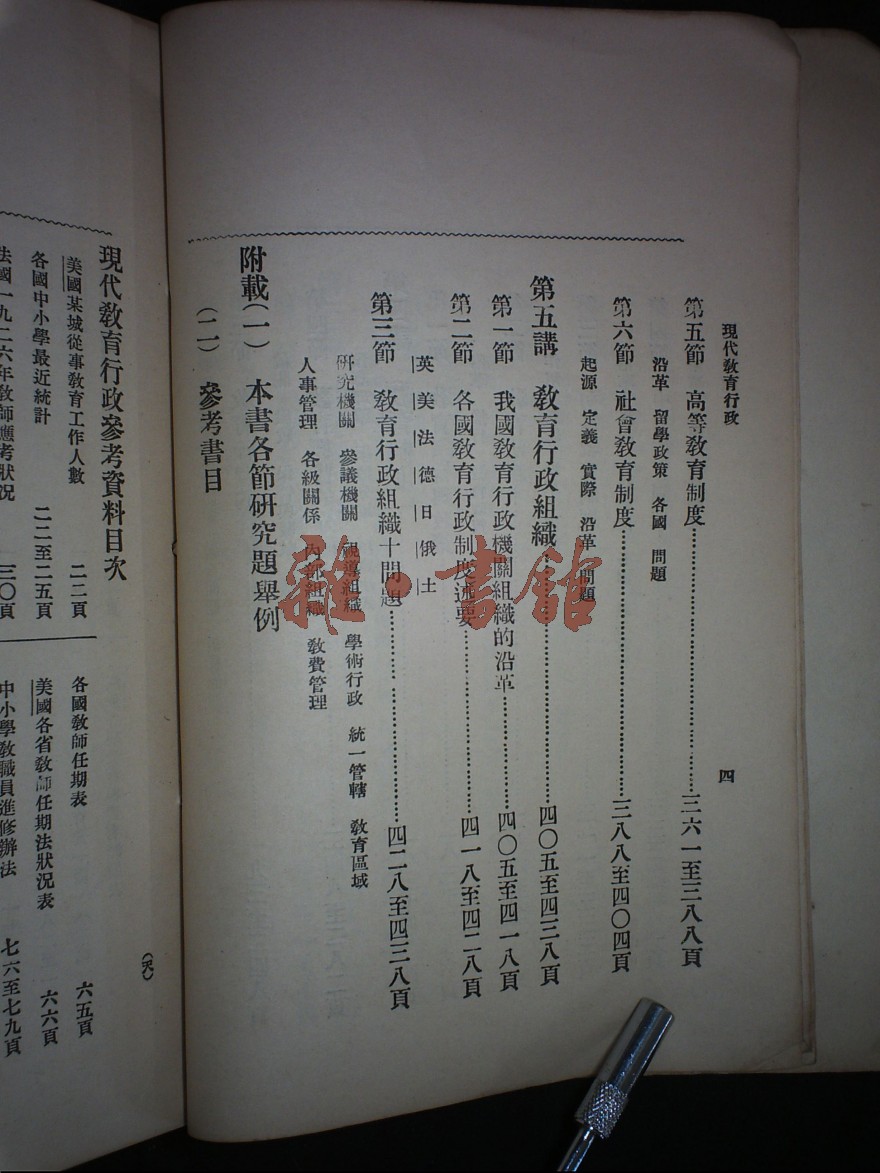 現代敎育行政
四
第五節 高等敎育制度……三六一至三八八頁
沿革 留學政策 各國 問題
第六節 社會敎育制度……三八八至四〇四頁
起源 定義 實際 沿革 問題
第五講 敎育行政組織……四〇五至四三八頁
第一節 我國敎育行政機關組織的沿革……四〇五至四一八頁
第二節 各國敎育行政制度述要……四一八至四二八頁
英 美 法 德 日 俄 土
第三節 敎育行政組織十問題……四二八至四三八頁
研究機關 參議機關 視導組織 學術行政 統一管轄 敎育區域
人事管理 各級關係 內部組織 敎費管理
附載(一) 本書各節研究題舉例
(二) 參考書目
雜·書館
現代敎育行政參考資料目次
美國某城從事敎育工作人數 二二頁
各國中小學最近統計 二二至二五頁
法國一九二六年敎師應考狀況 三〇頁
各國敎師任期表 六五頁
美國各省敎師任期法狀況表 六六頁
中小學敎職員進修辦法 七六至七九頁